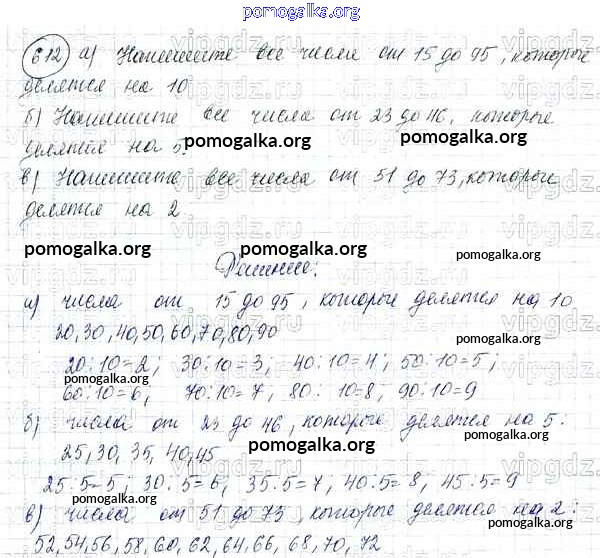 pomogalka.org
612 а) Напишите все числа от 15 до 95, которые
делятся на 10
б) Напишите все числа от 23 до 46, которые
pomogalka.org pomogalka.org
делятся на 5.
в) Напишите все числа от 51 до 73, которые
делятся на 2
pomogalka.org pomogalka.org pomogalka.org
Решение:
а) числа от 15 до 95, которые делятся на 10
20, 30, 40, 50, 60, 70, 80, 90
pomogalka.org
20:10=2; 30:10=3; 40:10=4; 50:10=5;
pomogalka.org
60:10=6, 70:10=7, 80:10=8, 90:10=9
б) числа от 23 до 46, которые делятся на 5:
pomogalka.org
25, 30, 35, 40, 45
pomogalka.org
25:5=5; 30:5=6; 35:5=7, 40:5=8, 45:5=9
pomogalka.org
в) числа от 51 до 73, которые делятся на 2:
pomogalka.org
52, 54, 56, 58, 60, 62, 64, 66, 68, 70, 72